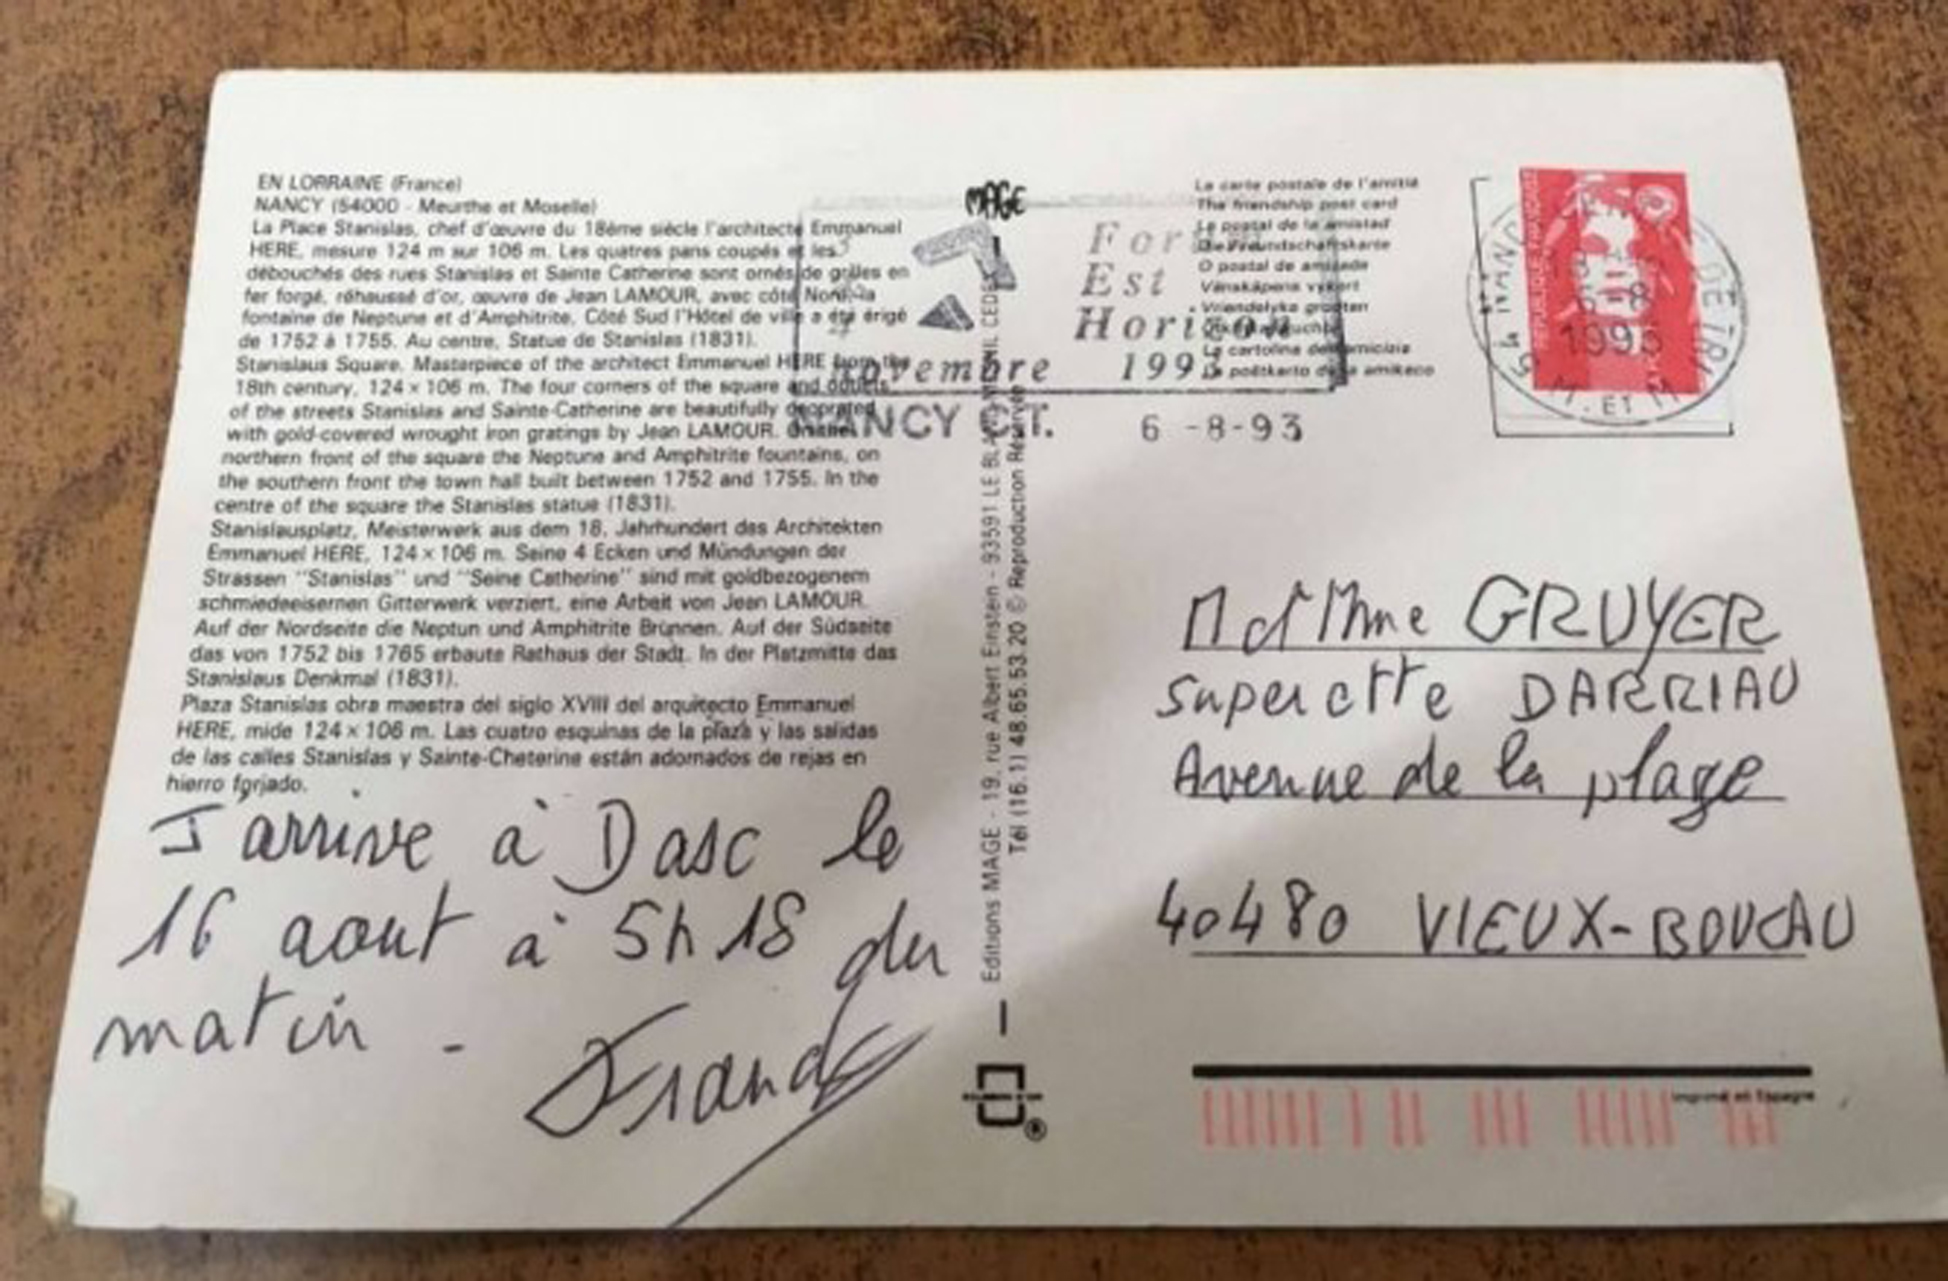 EN LORRAINE (France)
NANCY (54000 - Meurthe et Moselle)
La Place Stanislas, chef d'œuvre du 18ème siècle l'architecte Emmanuel
HERE, mesure 124 m sur 106 m. Les quatres pans coupés et les
débouchés des rues Stanislas et Sainte Catherine sont ornés de grilles en
fer forgé, réhaussé d'or, œuvre de Jean LAMOUR, avec côté Nord, la
fontaine de Neptune et d'Amphitrite. Côté Sud l'Hôtel de ville a été érigé
de 1752 à 1755. Au centre, Statue de Stanislas (1831).
Stanislaus Square. Masterpiece of the architect Emmanuel HERE from the
18th century, 124 × 106 m. The four corners of the square and outlets
of the streets Stanislas and Sainte-Catherine are beautifully decorated
with gold-covered wrought iron gratings by Jean LAMOUR. On the
northern front of the square the Neptune and Amphitrite fountains, on
the southern front the town hall built between 1752 and 1755. In the
centre of the square the Stanislas statue (1831).
Stanislausplatz, Meisterwerk aus dem 18. Jahrhundert das Architekten
Emmanuel HERE, 124 × 106 m. Seine 4 Ecken und Mündungen der
Strassen "Stanislas" und "Seine Catherine" sind mit goldbezogenem
schmiedeeisernen Gitterwerk verziert, eine Arbeit von Jean LAMOUR.
Auf der Nordseite die Neptun und Amphitrite Brünnen. Auf der Südseite
das von 1752 bis 1765 erbaute Rathaus der Stadt. In der Platzmitte das
Stanislaus Denkmal (1831).
Plaza Stanislas obra maestra del siglo XVIII del arquitecto Emmanuel
HERE, mide 124 × 106 m. Las cuatro esquinas de la plaza y las salidas
de las calles Stanislas y Sainte-Cheterine están adornados de rejas en
hierro forjado.
J'arrive à Dasc le
16 aout à 5h18 du
matin -
Franck
MAGE
Editions MAGE - 19, rue Albert Einstein - 93591 LE BLANC MESNIL CEDEX
Tél (16.1) 48.65.53.20 © Reproduction Réservée
Est
Horizon
novembre 1993
NANCY C.T. 6 -8-93
La carte postale de l'amitié
The friendship post card
La postal de la amistad
Die Freundschaftskarte
O postal de amizade
Vänskapens vykort
Vriendelyke groeten
La cartolina dell'amicizia
La poŝtkarto de la amikeco
REPUBLIQUE FRANÇAISE
6-8
1993
M. ET M.
M et Mme GRUYER
Superette DARRIAU
Avenue de la plage
40480 VIEUX-BOUCAU
Imprimé en Espagne
®